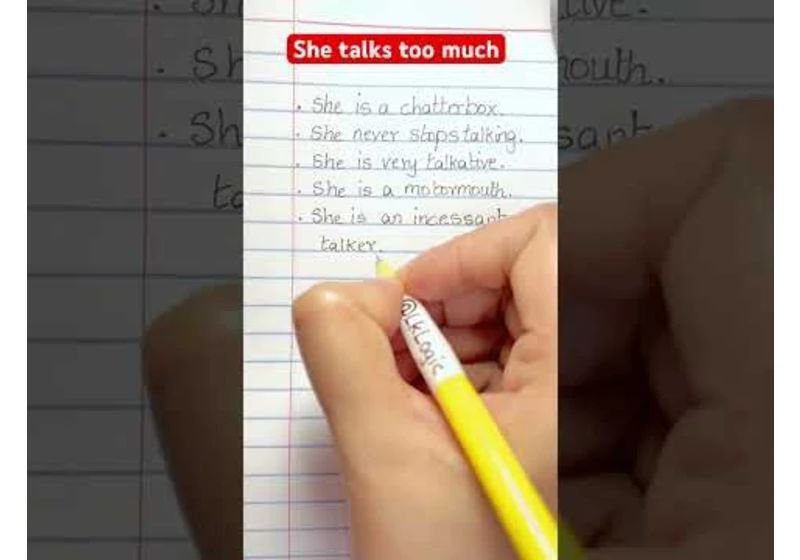 She talks too much
· She is a chatterbox.
· She never stops talking.
· She is very talkative.
· She is a motormouth.
· She is an incessant
talker.
@LkLogic